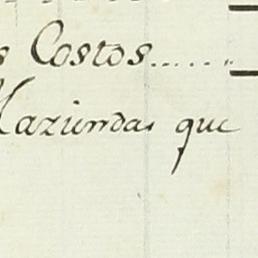 s Costos......
Haziendas que